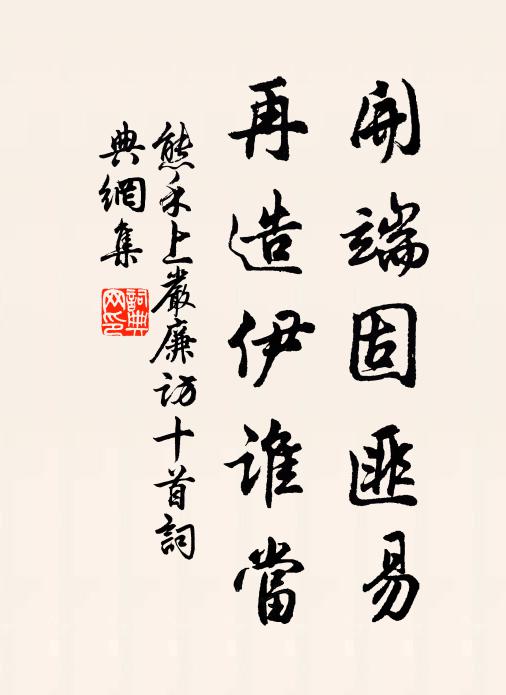 開端固匪易
再造伊誰當
熊禾上嚴廉訪十首詞
典網集
詞典網印